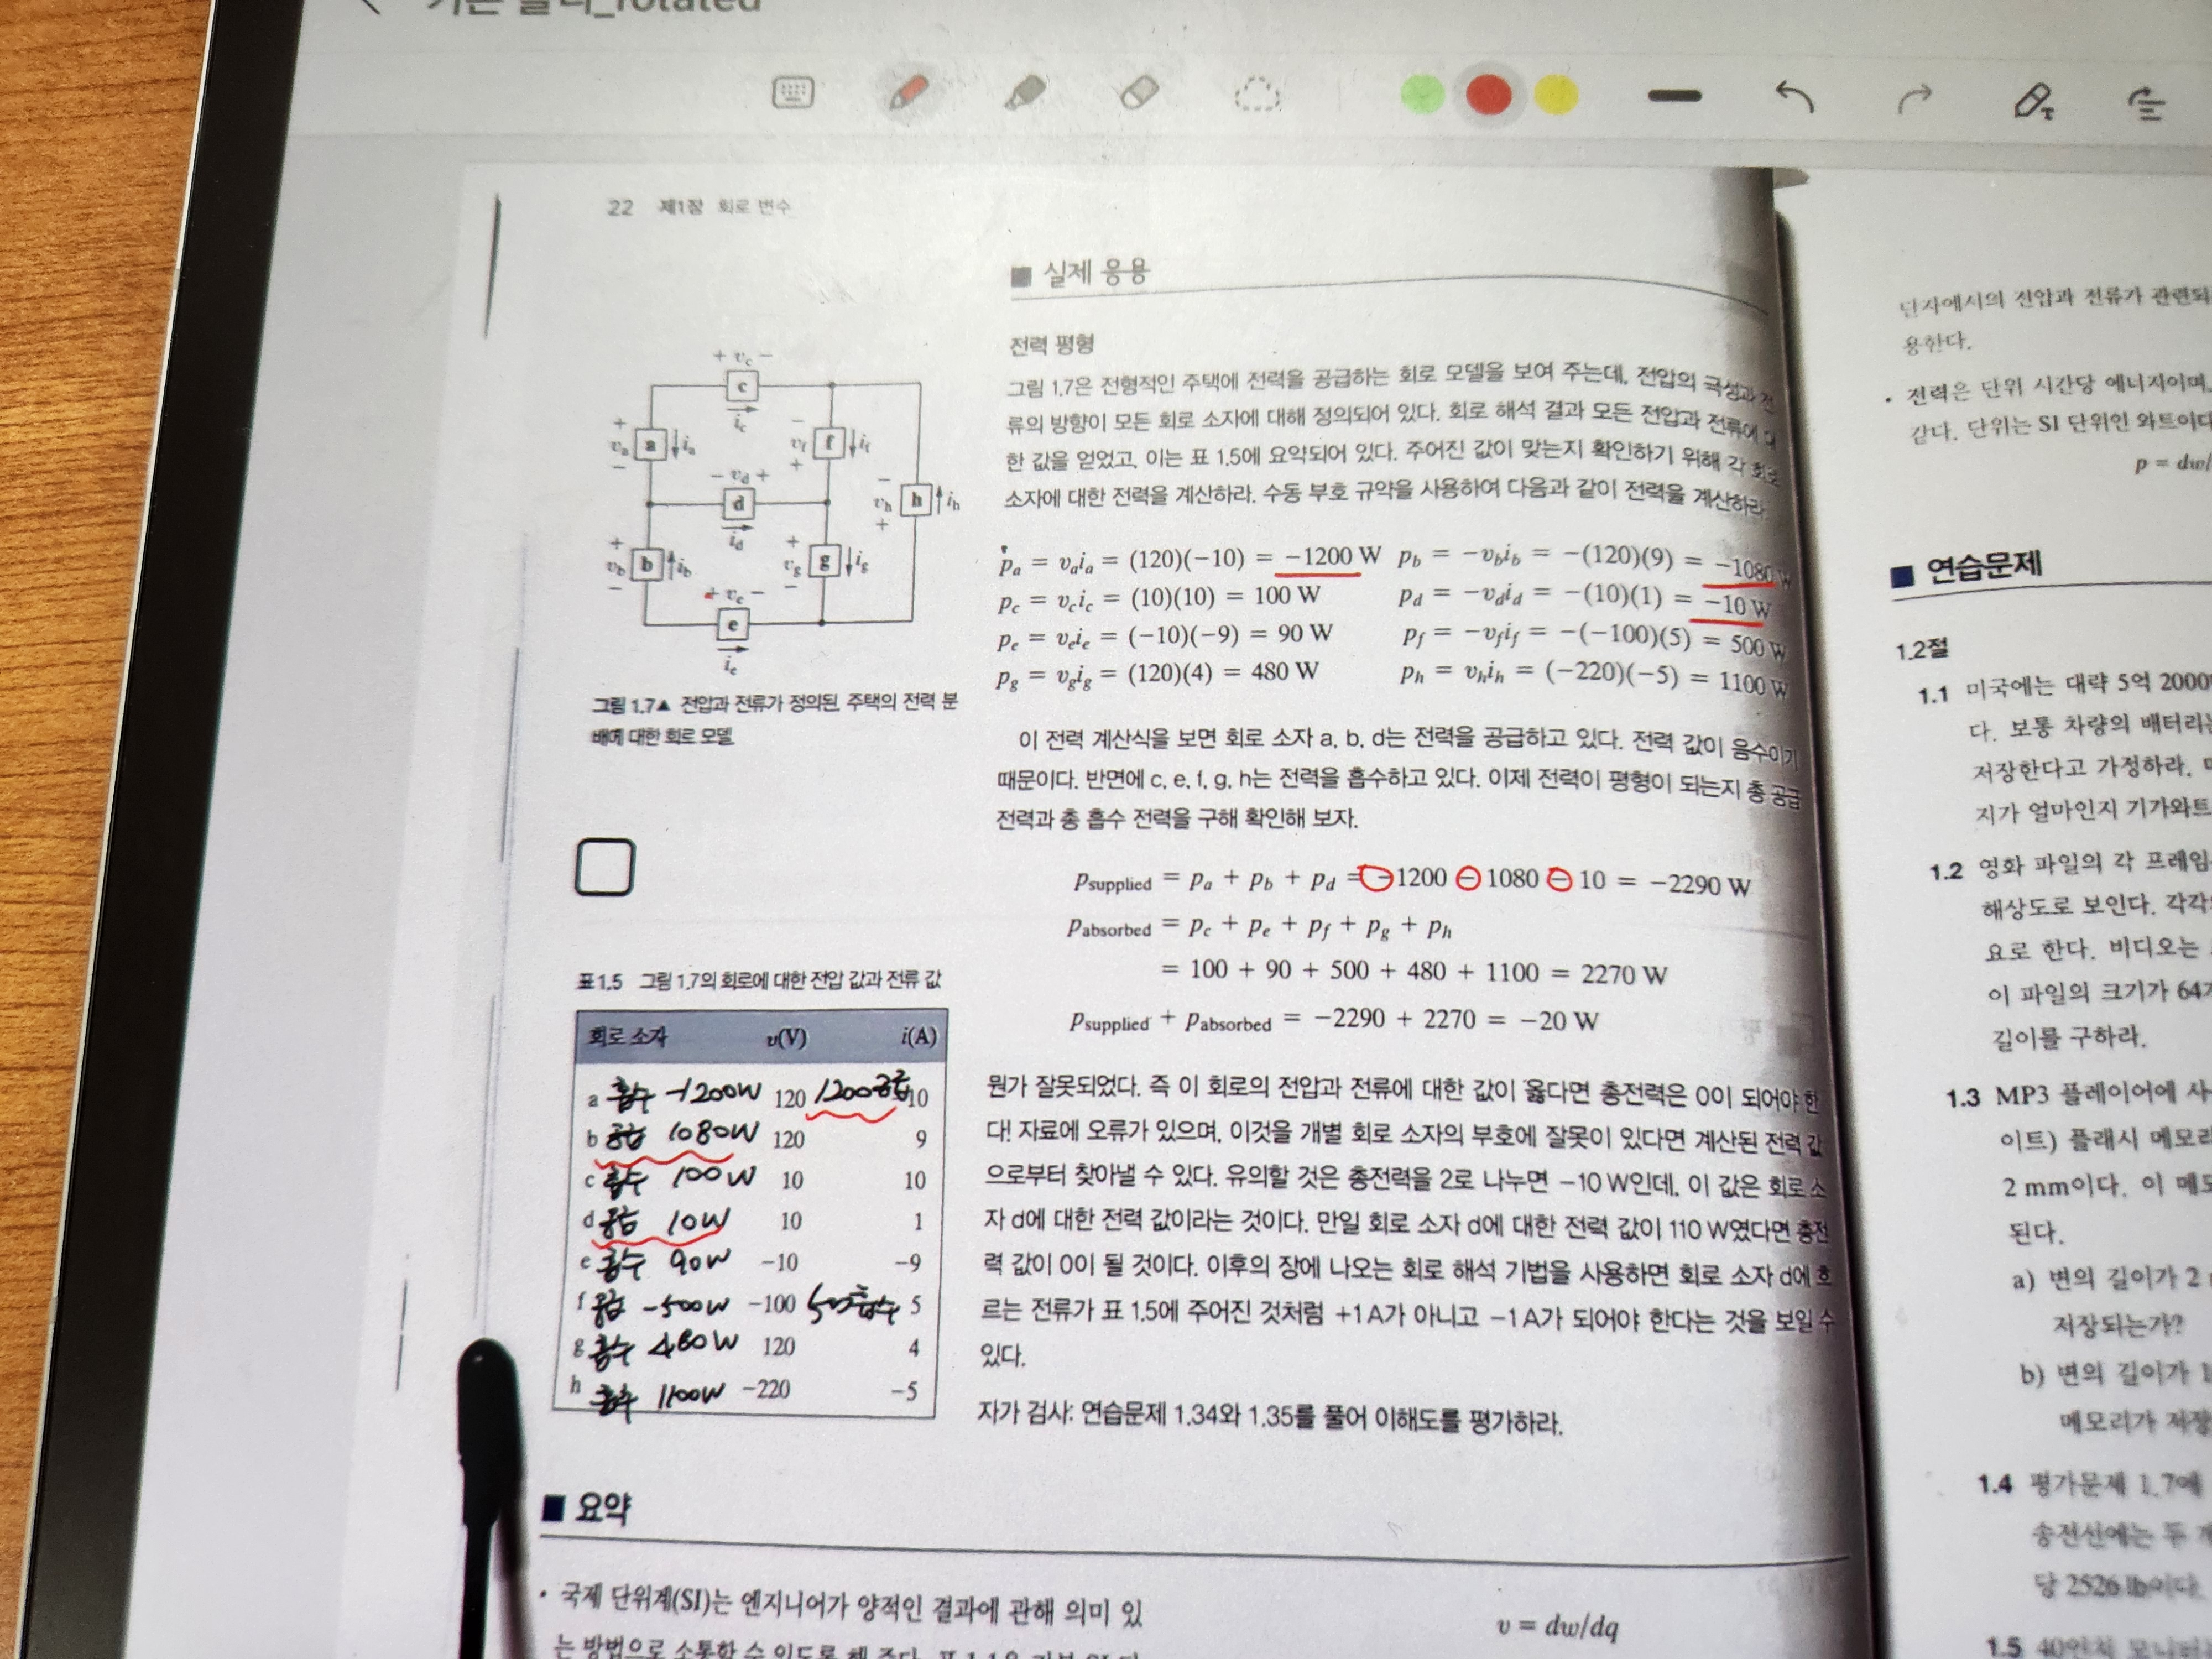 22 제1장 회로 변수
■ 실제 응용
전력 평형
그림 1.7은 전형적인 주택에 전력을 공급하는 회로 모델을 보여 주는데, 전압의 극성과 전
류의 방향이 모든 회로 소자에 대해 정의되어 있다. 회로 해석 결과 모든 전압과 전류에 대
한 값을 얻었고, 이는 표 1.5에 요약되어 있다. 주어진 값이 맞는지 확인하기 위해 각 회로
소자에 대한 전력을 계산하라. 수동 부호 규약을 사용하여 다음과 같이 전력을 계산하라.
pa = vaia = (120)(−10) = −1200 W pb = −vbib = −(120)(9) = −1080 W
pc = vcic = (10)(10) = 100 W pd = −vdid = −(10)(1) = −10 W
pe = veie = (−10)(−9) = 90 W pf = −vfif = −(−100)(5) = 500 W
pg = vgig = (120)(4) = 480 W ph = vhih = (−220)(−5) = 1100 W
이 전력 계산식을 보면 회로 소자 a, b, d는 전력을 공급하고 있다. 전력 값이 음수이기
때문이다. 반면에 c, e, f, g, h는 전력을 흡수하고 있다. 이제 전력이 평형이 되는지 총 공급
전력과 총 흡수 전력을 구해 확인해 보자.
psupplied = pa + pb + pd = −1200 − 1080 − 10 = −2290 W
pabsorbed = pc + pe + pf + pg + ph
= 100 + 90 + 500 + 480 + 1100 = 2270 W
psupplied + pabsorbed = −2290 + 2270 = −20 W
뭔가 잘못되었다. 즉 이 회로의 전압과 전류에 대한 값이 옳다면 총전력은 0이 되어야 한
다! 자료에 오류가 있으며, 이것을 개별 회로 소자의 부호에 잘못이 있다면 계산된 전력 값
으로부터 찾아낼 수 있다. 유의할 것은 총전력을 2로 나누면 −10 W인데, 이 값은 회로 소
자 d에 대한 전력 값이라는 것이다. 만일 회로 소자 d에 대한 전력 값이 110 W였다면 총전
력 값이 0이 될 것이다. 이후의 장에 나오는 회로 해석 기법을 사용하면 회로 소자 d에 흐
르는 전류가 표 1.5에 주어진 것처럼 +1 A가 아니고 −1 A가 되어야 한다는 것을 보일 수
있다.
자가 검사: 연습문제 1.34와 1.35를 풀어 이해도를 평가하라.
+ vc −
c
ic
+ va − a ia
− vf + f if
− vd +
d
id
− vh + h ih
+ vb − b ib
+ vg − g ig
+ ve −
e
ie
그림 1.7▲ 전압과 전류가 정의된, 주택의 전력 분
배에 대한 회로 모델
표 1.5 그림 1.7의 회로에 대한 전압 값과 전류 값
회로 소자 v(V) i(A)
a 흡수 -1200W 120 1200공급 10
b 공급 1080W 120 9
c 흡수 100W 10 10
d 공급 10W 10 1
e 흡수 90W −10 −9
f 공급 -500W −100 500흡수 5
g 흡수 480W 120 4
h 흡수 1100W −220 −5
■ 요약
• 국제 단위계(SI)는 엔지니어가 양적인 결과에 관해 의미 있
는 방법으로 소통할 수 있도록 해 준다.
v = dw/dq
단자에서의 전압과 전류가 관련되
용한다.
• 전력은 단위 시간당 에너지이며,
같다. 단위는 SI 단위인 와트이다
p = dw/
■ 연습문제
1.2절
1.1 미국에는 대략 5억 2000
다. 보통 차량의 배터리는
저장한다고 가정하라.
지가 얼마인지 기가와트
1.2 영화 파일의 각 프레임
해상도로 보인다. 각각
요로 한다. 비디오는
이 파일의 크기가 64
길이를 구하라.
1.3 MP3 플레이어에 사
이트) 플래시 메모리
2 mm이다. 이 메모
된다.
a) 변의 길이가 2
저장되는가?
b) 변의 길이가 1
메모리가 저장
1.4 평가문제 1.7에
송전선에는 두
당 2526 lb이다.
1.5 40인치 모니터